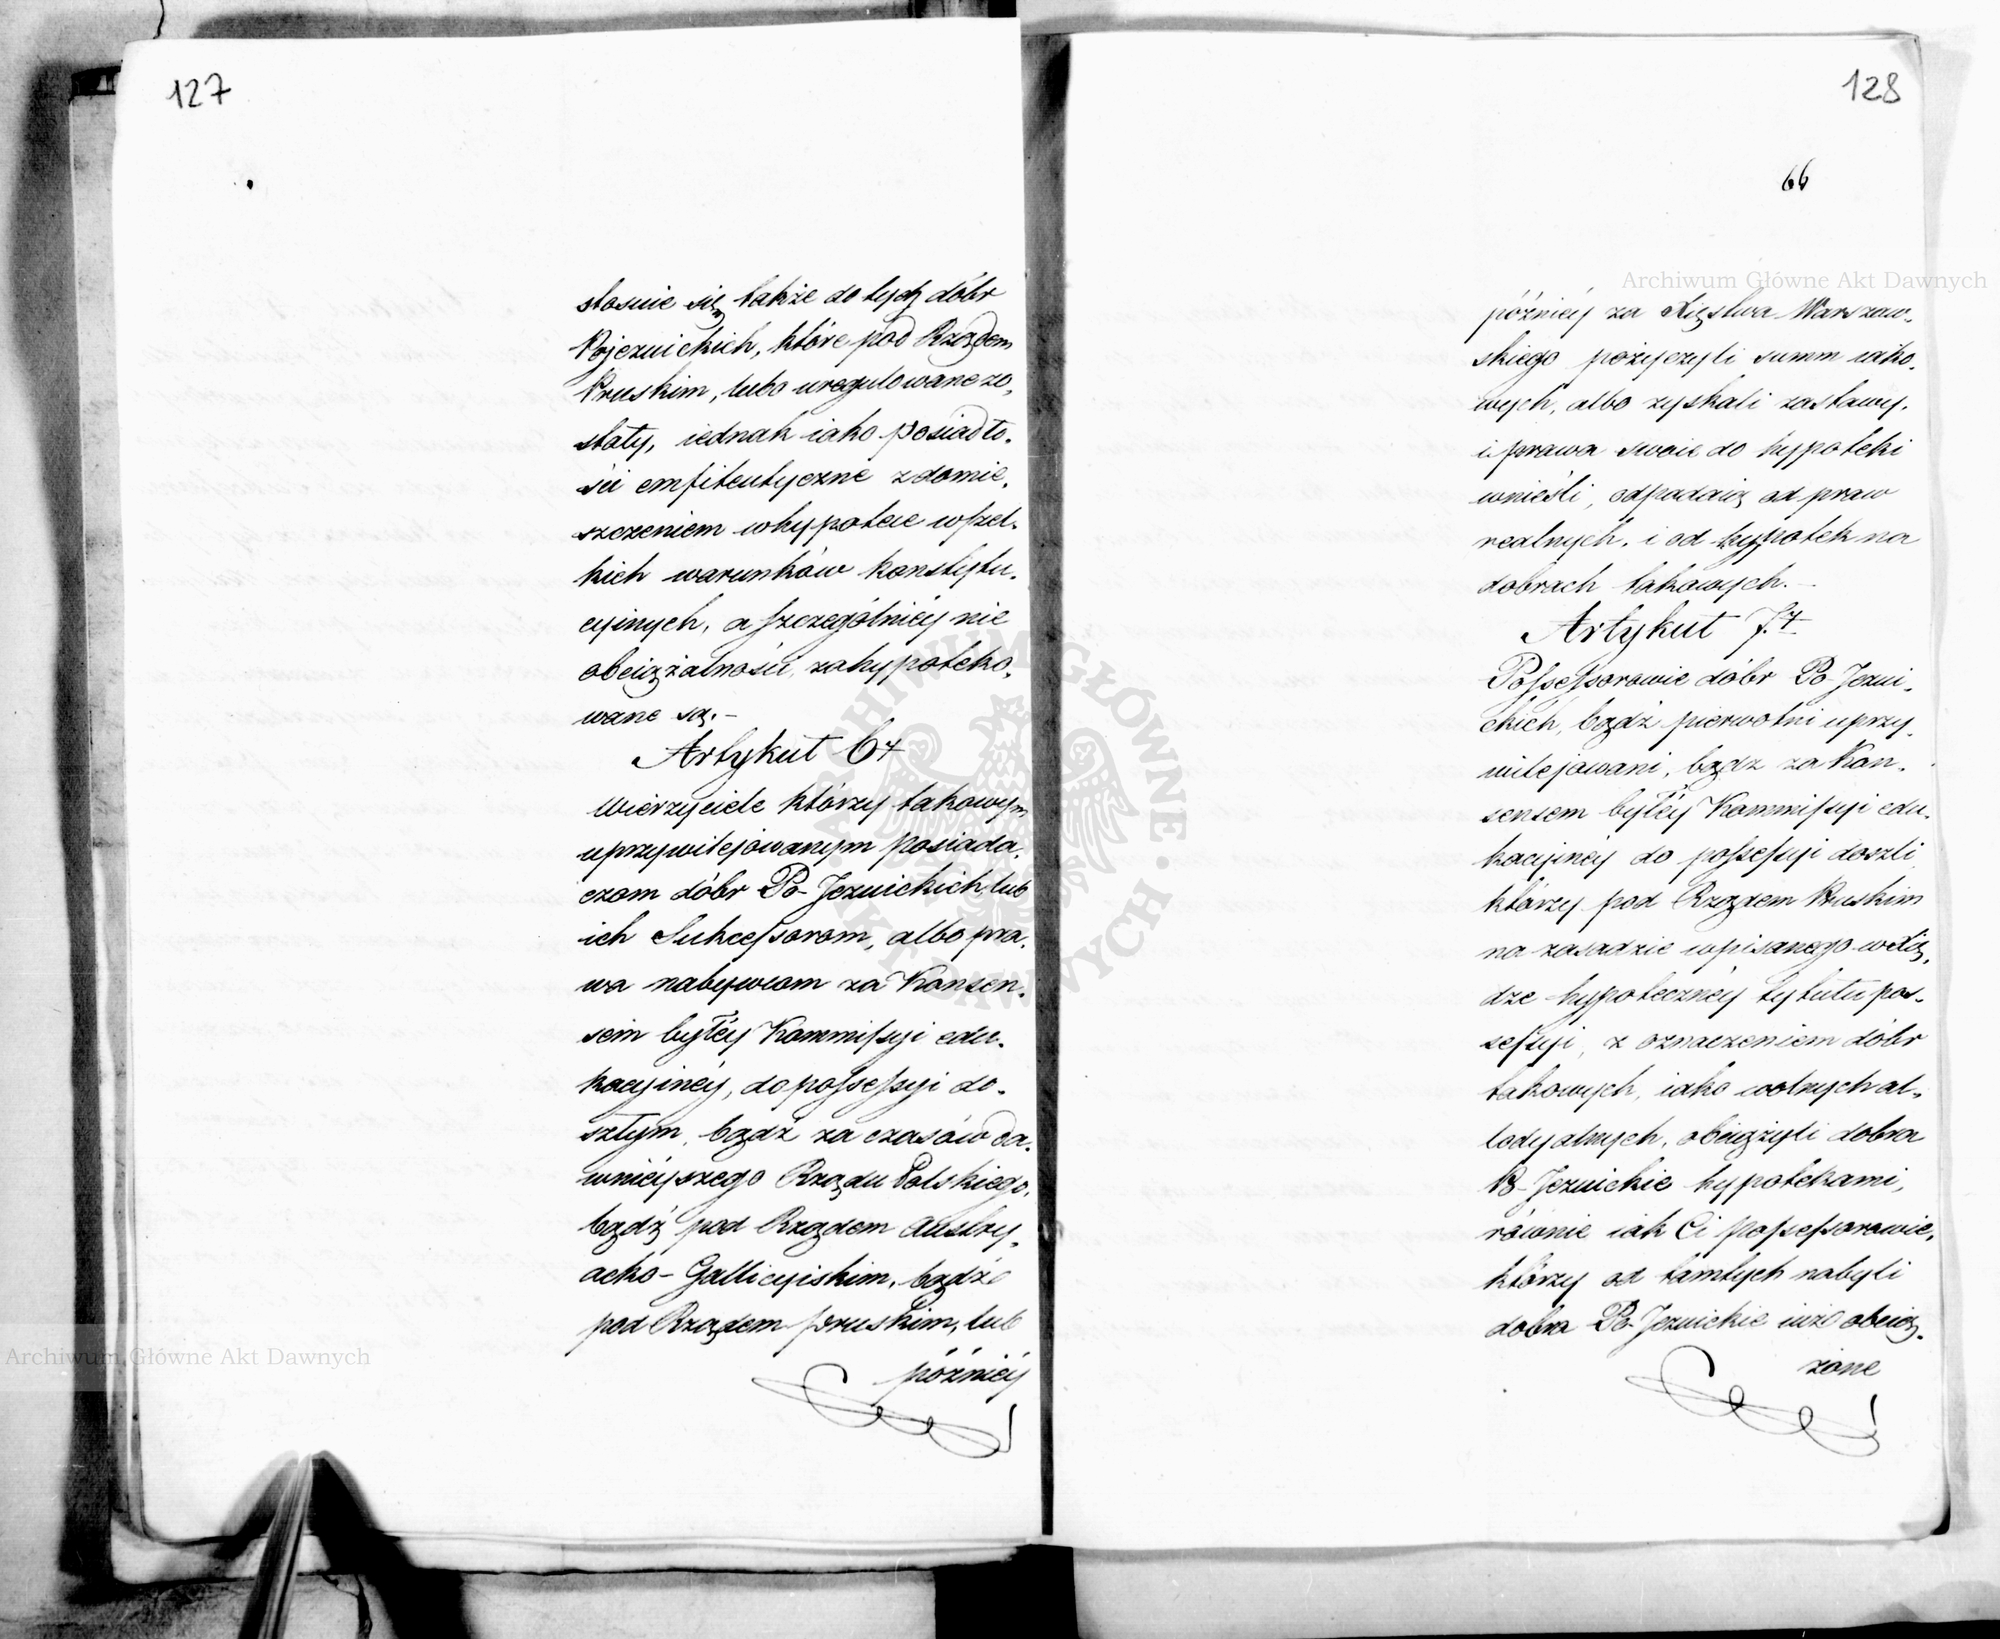 127
stosuie się także do tych dóbr
Pojezuickich, które pod Rządem
Pruskim, lubo uregulowane zo-
stały, iednak iako posiadło-
ści emfiteutyczne z domie-
szczeniem w hypotece wszel-
kich warunków konstytu-
cyinych, a szczególniéy nie
obciążalności, zahypoteko-
wane są. –
Artykuł 6ty
Wierzyciele którzy takowym
uprzywilejowanym posiada-
czom dóbr Po-Jezuickich, lub
ich Sukcessorom, albo pra-
wa nabywcom za Konsen-
sem byłéy Kommissyi edu-
kacyinéy, do possessyi do-
szłym, bądź za czasów da-
wniéyszego Rządu Polskiego,
bądź pod Rządem Austry-
acko-Gallicyiskim, bądź
pod Rządem pruskim, lub
późniéy
128
66
późniéy za Xięstwa Warszaw-
skiego pożyczyli summ iako-
wych, albo zyskali zastawy,
i prawa swoie do hypoteki
wnieśli, odpadaią od praw
realnych, i od hypotek na
dobrach takowych. –
Artykuł 7y
Possessorowie dóbr Po-Jezui-
ckich, bądź pierwotni uprzy-
wilejowani, bądz za Kon-
sensem byłéy Kommissyi edu-
kacyinéy do possessyi doszli
którzy pod Rządem Pruskim
na zasadzie wpisanego w Xię-
dze hypotecznéy tytułu pos-
sessyi, z oznaczeniem dóbr
takowych, iako wolnych al-
lodyalnych, obciążyli dobra
Po-Jezuickie hypotekami,
równie iak Ci possessorowie,
którzy od tamtych nabyli
dobra Po-Jezuickie iuż obcią-
żone
Archiwum Główne Akt Dawnych
Archiwum Główne Akt Dawnych
ARCHIWUM GŁÓWNE AKT DAWNYCH